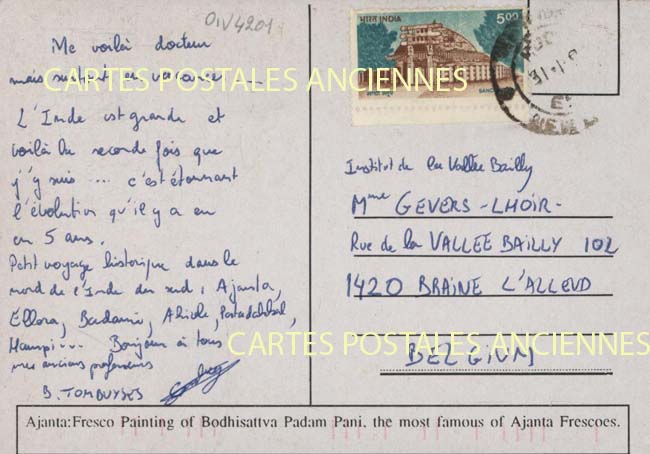 OIV4201
Me voilà docteur
mais surtout en vacances
L'Inde est grande et
voilà la seconde fois que
j'y suis ... c'est étonnant
l'évolution qu'il y a eu
en 5 ans.
Petit voyage historique dans le
nord de l'Inde du sud : Ajanta,
Ellora, Badami, Aihole, Pattadakal,
Hampi... Bonjour à tous
mes anciens professeurs
भारत INDIA
5.00
Institut de la Vallée Bailly
Mme GEVERS - LHOIR -
Rue de la VALLEE BAILLY 102
1420 BRAINE L'ALLEUD
BELGIUM
CARTES POSTALES ANCIENNES
CARTES POSTALES ANCIENNES
Ajanta:Fresco Painting of Bodhisattva Padam Pani, the most famous of Ajanta Frescoes.